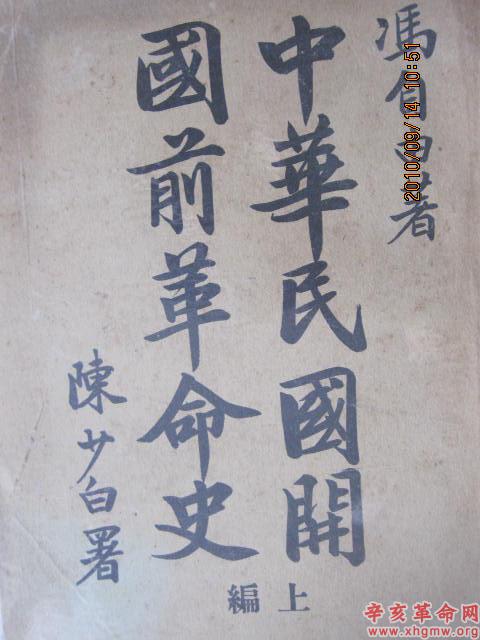 馮自由著
中華民國開
國前革命史
陳少白署
上編
2010/09/14 10:51
辛亥革命网
www.xhgmw.org